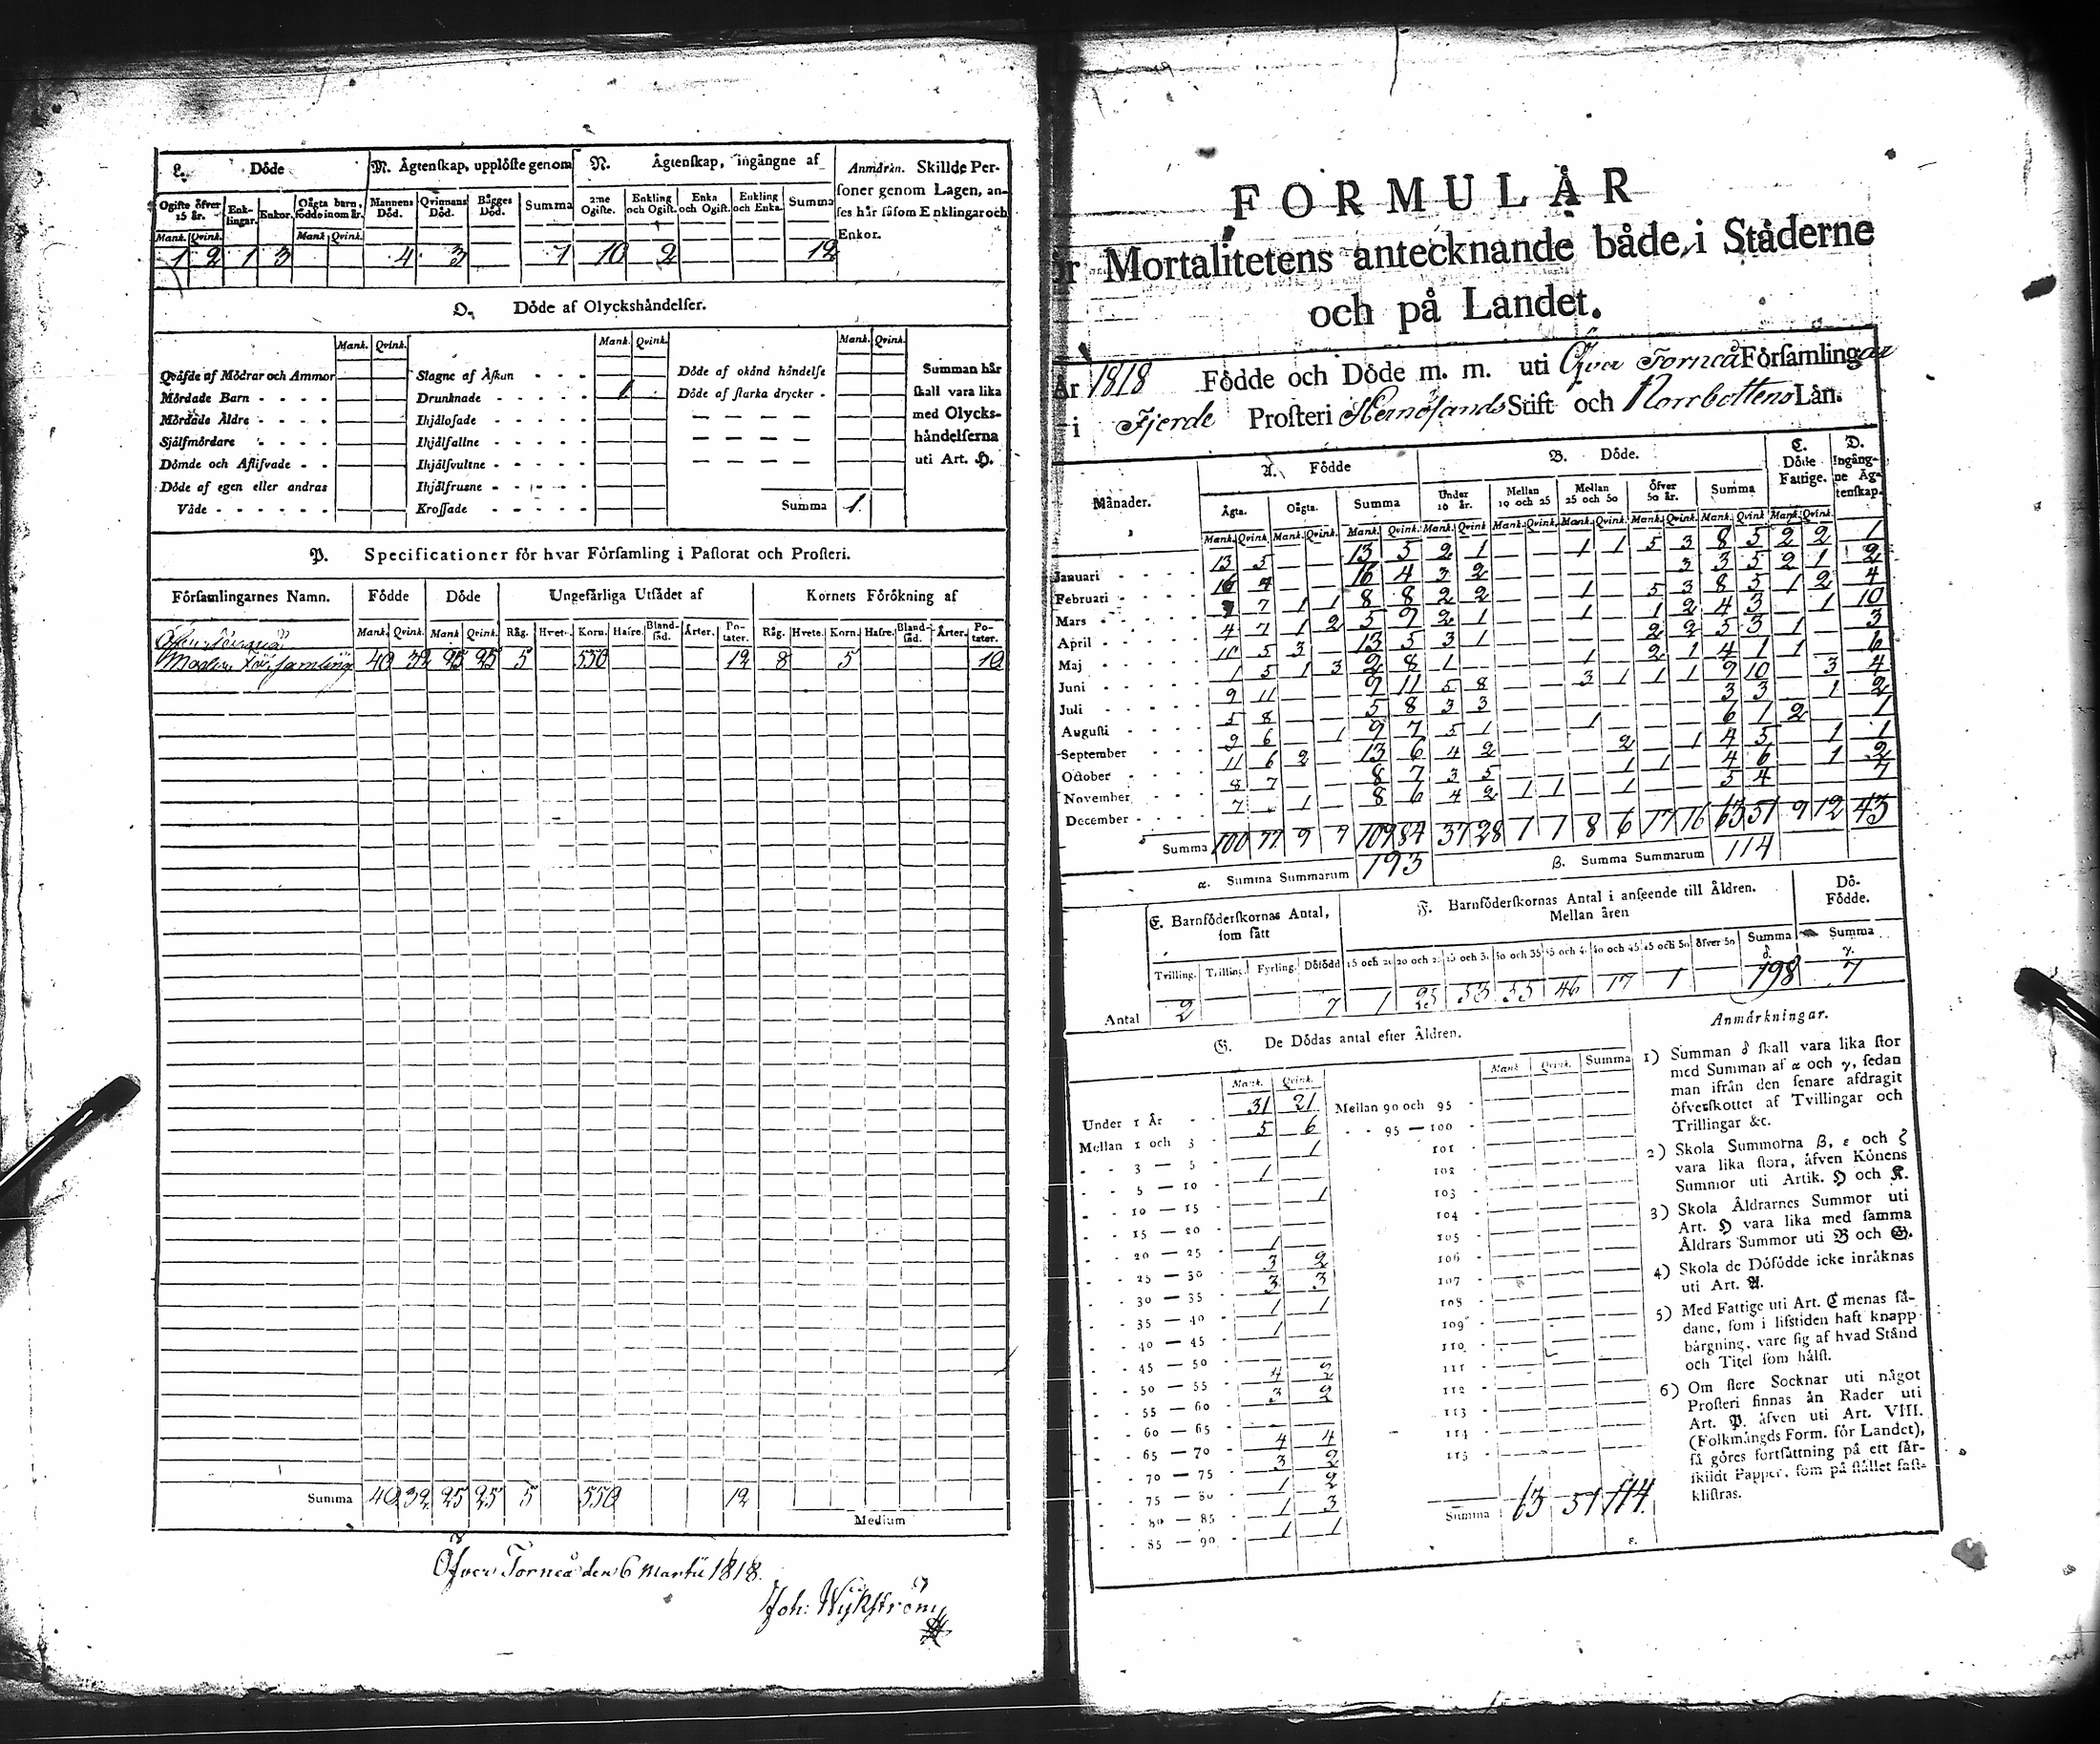 L. Döde
M. Ägtenskap, upplöste genom
N. Ägtenskap, ingångne af
Anmärkn. Skillde Per-
soner genom Lagen, an-
ses här såsom Enklingar och
Enkor.
Ogifte öfver 15 år. Enk-lingar. Enkor. Oägta barn, födde inom år. Mannens Död. Qvinnans Död. Bägges Död. Summa 2:ne Ogifte. Enkling och Ogift. Enka och Ogift. Enkling och Enka. Summa
Mank. Qvink. Mank. Qvink.
1 2 1 3 4 3 7 10 2 12
O. Döde af Olyckshändelser.
Mank. Qvink. Mank. Qvink. Mank. Qvink.
Qväfde af Mödrar och Ammor Slagne af Åskan - - - Döde af okänd händelse Summan här
Mördade Barn - - - - Drunknade - - - - 1 Döde af starka drycker - skall vara lika
Mördade Äldre - - - - Ihjälosade - - - - med Olycks-
Sjelfmördare - - - - Ihjälfallne - - - - händelserna
Dömde och Aflifvade - - Ihjälsvultne - - - - uti Art. H.
Döde af egen eller andras Ihjälfrusne - - - -
Våde - - - - - - Krossade - - - - - Summa 1
P. Specificationer för hvar Församling i Pastorat och Prosteri.
Församlingarnes Namn. Födde Döde Ungefärliga Utsädet af Kornets Förökning af
Mank. Qvink. Mank Qvink. Råg. Hvete. Korn. Hafre. Bland-säd. Ärter. Po-tater. Råg. Hvete. Korn. Hafre. Bland-säd. Ärter. Po-tater.
Öfver Torneå
Moder Församling 40 32 25 25 5 550 12 8 5 10
Summa 40 32 25 25 5 550 12
Medium
Öfver Torneå den 6 Martii 1818.
Joh: Wijkström
FORMULÄR
ör Mortalitetens antecknande både i Städerne
och på Landet.
År 1818 Födde och Döde m. m. uti Öfver Torneå Församlingar
i Fjerde Prosteri Hernösands Stift och Norrbottens Län.
Månader. A. Födde B. Döde. C. Döde Fattige. D. Ingång-ne Äg-tenskap.
Ägta. Oägta. Summa Under 10 år. Mellan 10 och 25 Mellan 25 och 50 Öfver 50 år. Summa
Mank. Qvink. Mank. Qvink. Mank. Qvink. Mank. Qvink Mank. Qvink. Mank. Qvink. Mank. Qvink. Mank. Qvink Mank. Qvink.
Januari - - - 13 5 13 5 2 1 1 1 5 3 8 5 2 2 1
Februari - - - 16 4 16 4 3 2 3 3 5 2 1 2
Mars - - - - 7 7 1 1 8 8 2 2 1 5 3 8 5 1 2 4
April - - - - 4 7 1 2 5 9 2 1 1 1 2 4 3 1 10
Maj - - - - 10 5 3 13 5 3 1 2 2 5 3 1 3
Juni - - - - 1 5 1 3 2 8 1 1 2 1 4 1 1 6
Juli - - - - 9 11 9 11 5 8 3 1 1 1 9 10 3 4
Augusti - - - 5 8 5 8 3 3 3 3 1 2
September - - - 9 6 1 9 7 5 1 1 6 1 2 1
October - - - 11 6 2 13 6 4 2 2 1 4 5 1 1
November - - - 8 7 8 7 3 5 1 1 4 6 1 2
December - - - 7 1 8 6 4 2 1 1 1 5 4 7
Summa 100 77 9 7 109 84 37 28 1 1 8 6 17 16 63 51 9 12 43
α. Summa Summarum 193 β. Summa Summarum 114
E. Barnföderskornas Antal, som fått
F. Barnföderskornas Antal i anseende till Åldren.
Mellan åren
Dö-
Födde.
Tvilling. Trilling. Fyrling. Dödfödd 15 och 20 20 och 25 25 och 30 30 och 35 35 och 40 40 och 45 45 och 50 öfver 50 Summa δ. Summa γ.
Antal 2 7 1 25 53 55 46 17 1 198 7
G. De Dödas antal efter Åldren.
Mank. Qvink. Mank Qvink. Summa
Under 1 År - - 31 21 Mellan 90 och 95 -
Mellan 1 och 3 - 5 6 - - 95 — 100 -
- - 3 — 5 - 1 101 -
- - 5 — 10 - 1 102 -
- - 10 — 15 - 1 103 -
- - 15 — 20 - 104 -
- - 20 — 25 - 1 105 -
- - 25 — 30 - 3 2 106 -
- - 30 — 35 - 3 3 107 -
- - 35 — 40 - 1 1 108 -
- - 40 — 45 - 1 109 -
- - 45 — 50 - 110 -
- - 50 — 55 - 4 2 111 -
- - 55 — 60 - 3 2 112 -
- - 60 — 65 - 113 -
- - 65 — 70 - 4 4 114 -
- - 70 — 75 - 3 2 115 -
- - 75 — 80 - 1 2
- - 80 — 85 - 1 3
- - 85 — 90 - 1 1
Summa 63 51 114.
ε.
Anmärkningar.
1) Summan δ skall vara lika stor
med Summan af α och γ, sedan
man ifrån den senare afdragit
öfverskottet af Tvillingar och
Trillingar &c.
2) Skola Summorna β, ε och ζ
vara lika stora, äfven Könens
Summor uti Artik. H och K.
3) Skola Åldrarnes Summor uti
Art. H vara lika med samma
Åldrars Summor uti B och G.
4) Skola de Dödfödde icke inräknas
uti Art. A.
5) Med Fattige uti Art. C menas så-
dane, som i lifstiden haft knapp
bärgning, vare sig af hvad Stånd
och Titel som hälst.
6) Om flere Socknar uti något
Prosteri finnas än Rader uti
Art. P. äfven uti Art. VIII.
(Folkmängds Form. för Landet),
så göres fortsättning på ett sär-
skildt Papper, som på stället fast-
klistras.